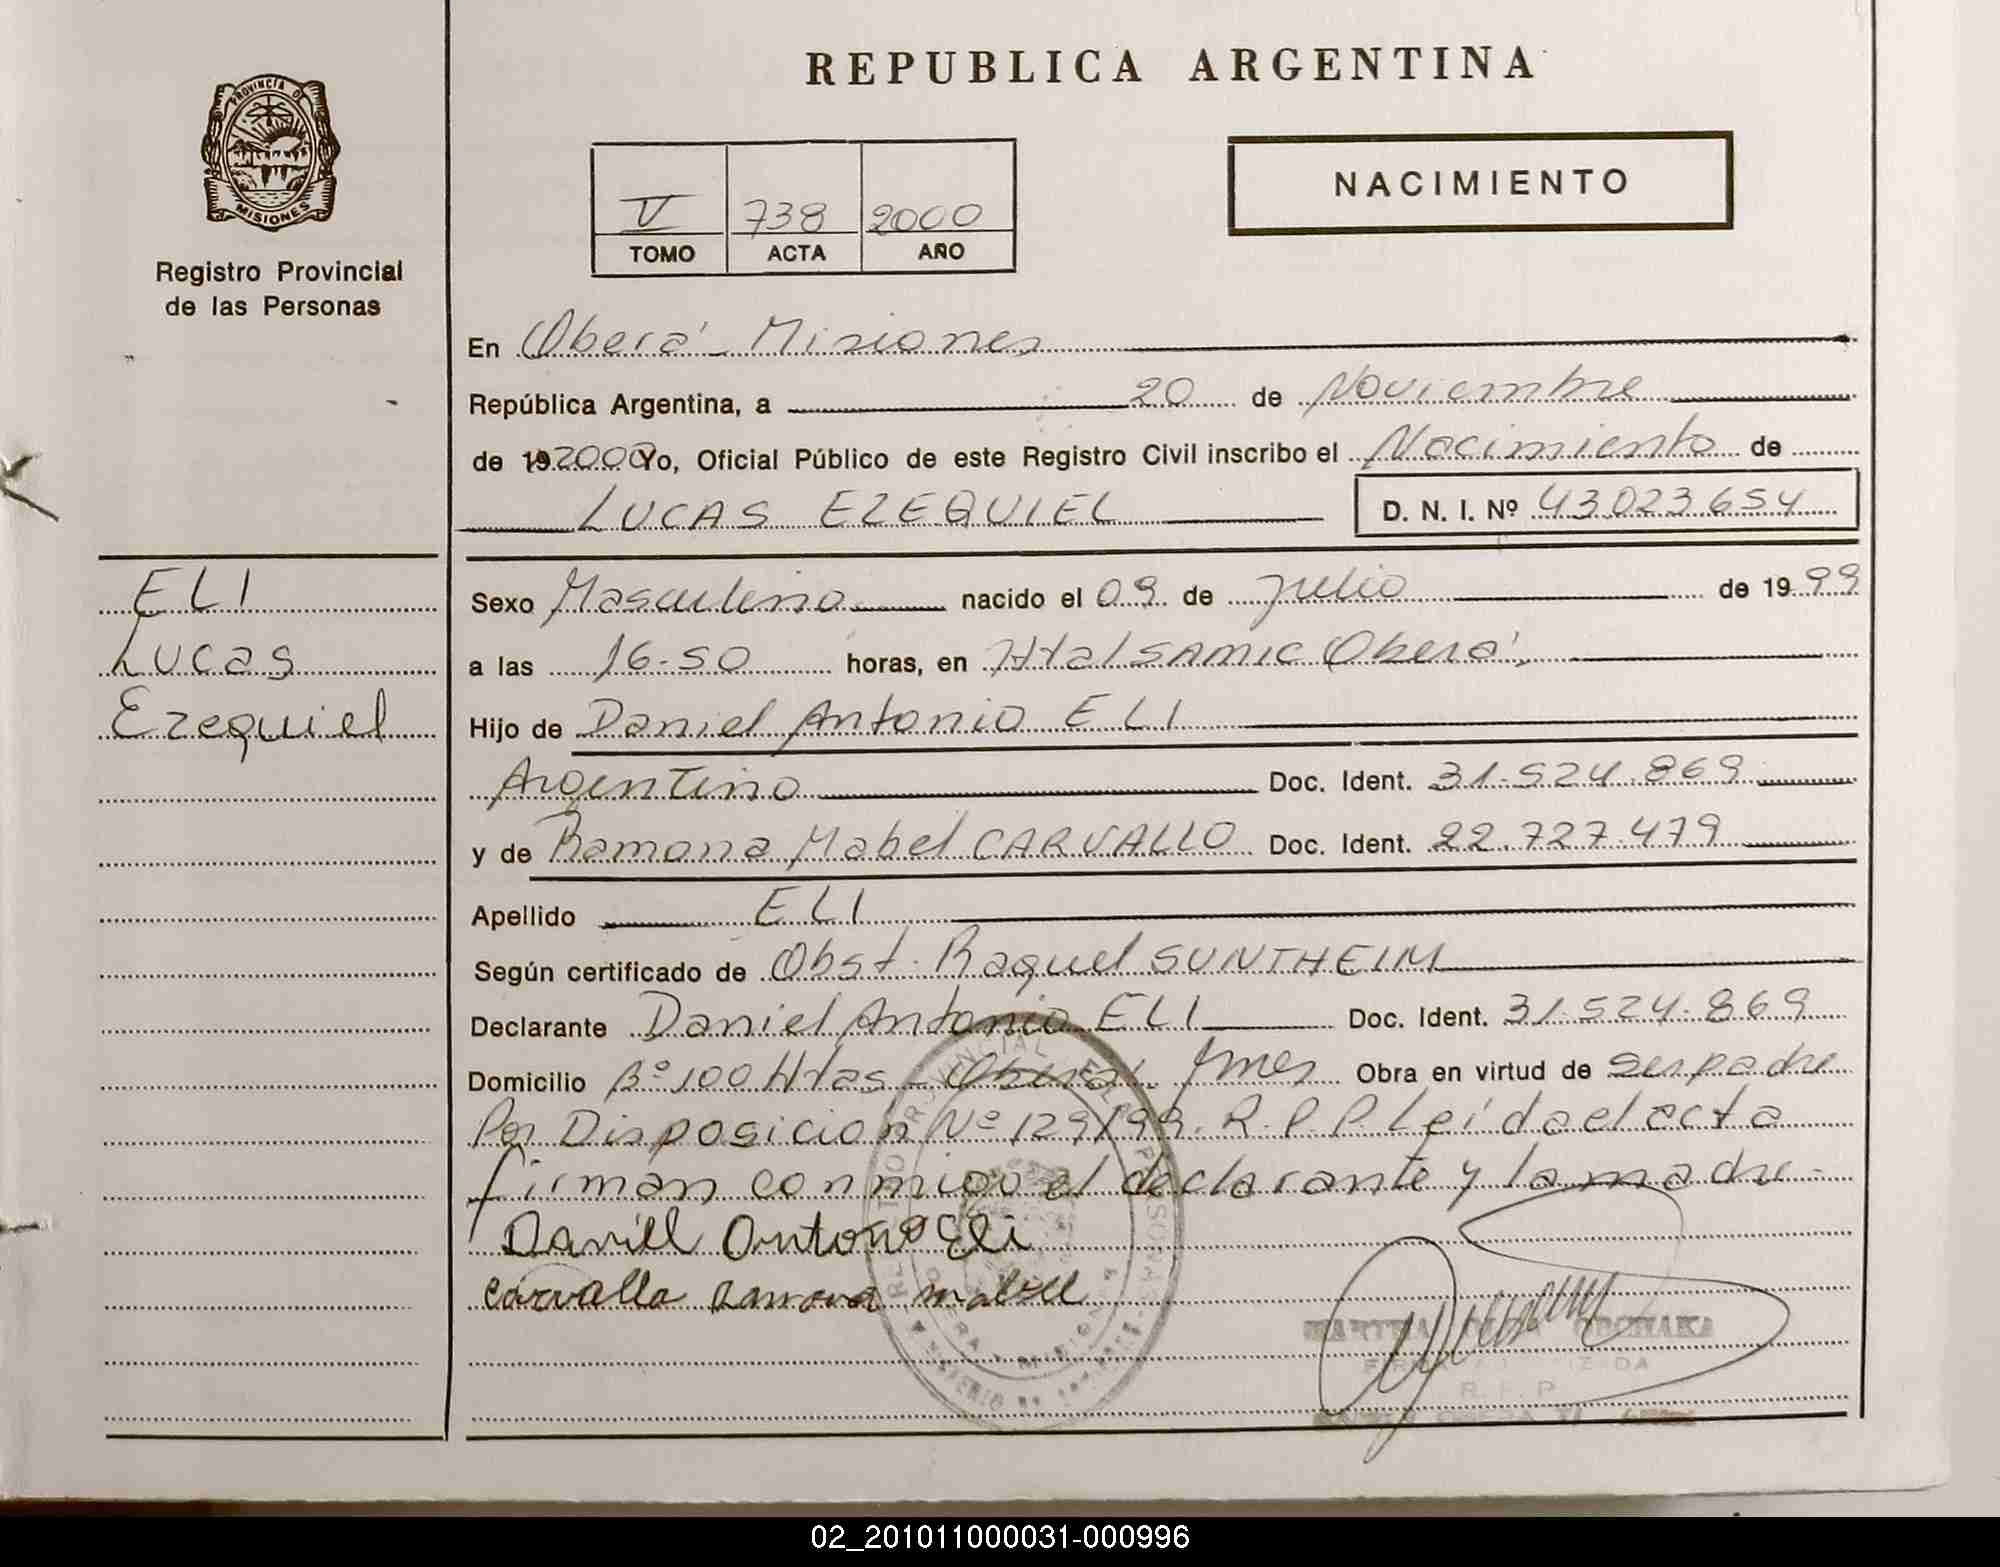 REPUBLICA ARGENTINA
PROVINCIA DE
MISIONES
Registro Provincial
de las Personas
V 738 2000
TOMO ACTA AÑO
NACIMIENTO
En Oberá - Misiones
República Argentina, a 20 de Noviembre
de 19 2000 Yo, Oficial Público de este Registro Civil inscribo el Nacimiento de
LUCAS EZEQUIEL D. N. I. Nº 43023654
ELI
Lucas
Ezequiel
Sexo Masculino nacido el 09 de Julio de 1999
a las 16-50 horas, en Htal SAMIC Oberá
Hijo de Daniel Antonio ELI
Argentino Doc. Ident. 31.524.869
y de Ramona Mabel CARVALLO Doc. Ident. 22.727.479
Apellido ELI
Según certificado de Obst. Raquel SUNTHEIM
Declarante Daniel Antonio ELI Doc. Ident. 31.524.869
Domicilio Bº 100 Htas - Oberá Mnes Obra en virtud de ser padre
Por Disposición Nº 129/99. R.P.P. Leída el acta
firman conmigo el declarante y la madre-
Daniel Antonio Eli
Carvallo Ramona Mabel
R. P. P.
02_201011000031-000996